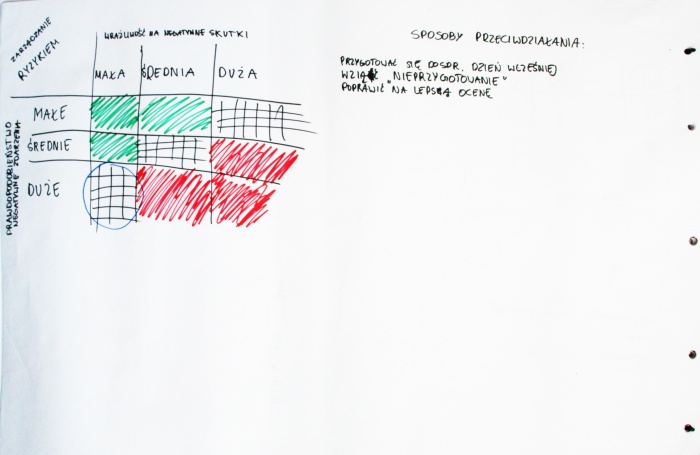 ZARZĄDZANIE
RYZYKIEM
WRAŻLIWOŚĆ NA NEGATYWNE SKUTKI
MAŁA ŚREDNIA DUŻA
PRAWDOPODOBIEŃSTWO
NEGATYWNE ZDARZENIA
MAŁE
ŚREDNIE
DUŻE
SPOSOBY PRZECIWDZIAŁANIA:
PRZYGOTOWAĆ SIĘ DO SPR. DZIEŃ WCZEŚNIEJ
WZIĄĆ "NIEPRZYGOTOWANIE"
POPRAWIĆ NA LEPSZĄ OCENĘ